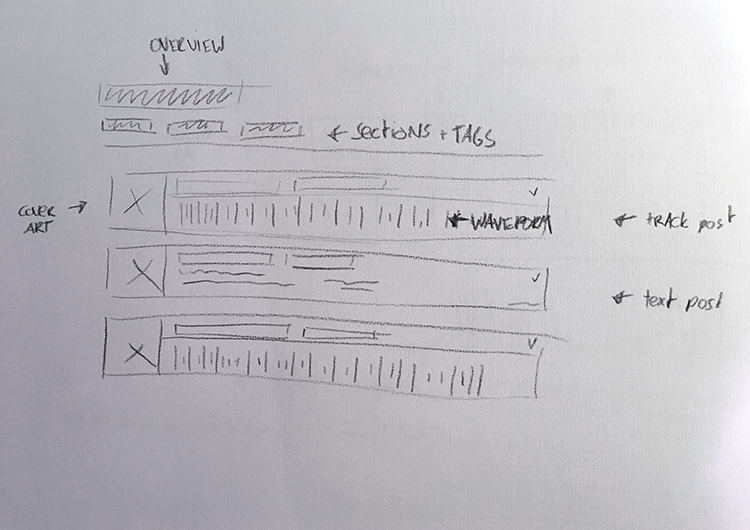 OVERVIEW
SECTIONS + TAGS
COVER
ART
WAVEFORM
tRACK post
text post